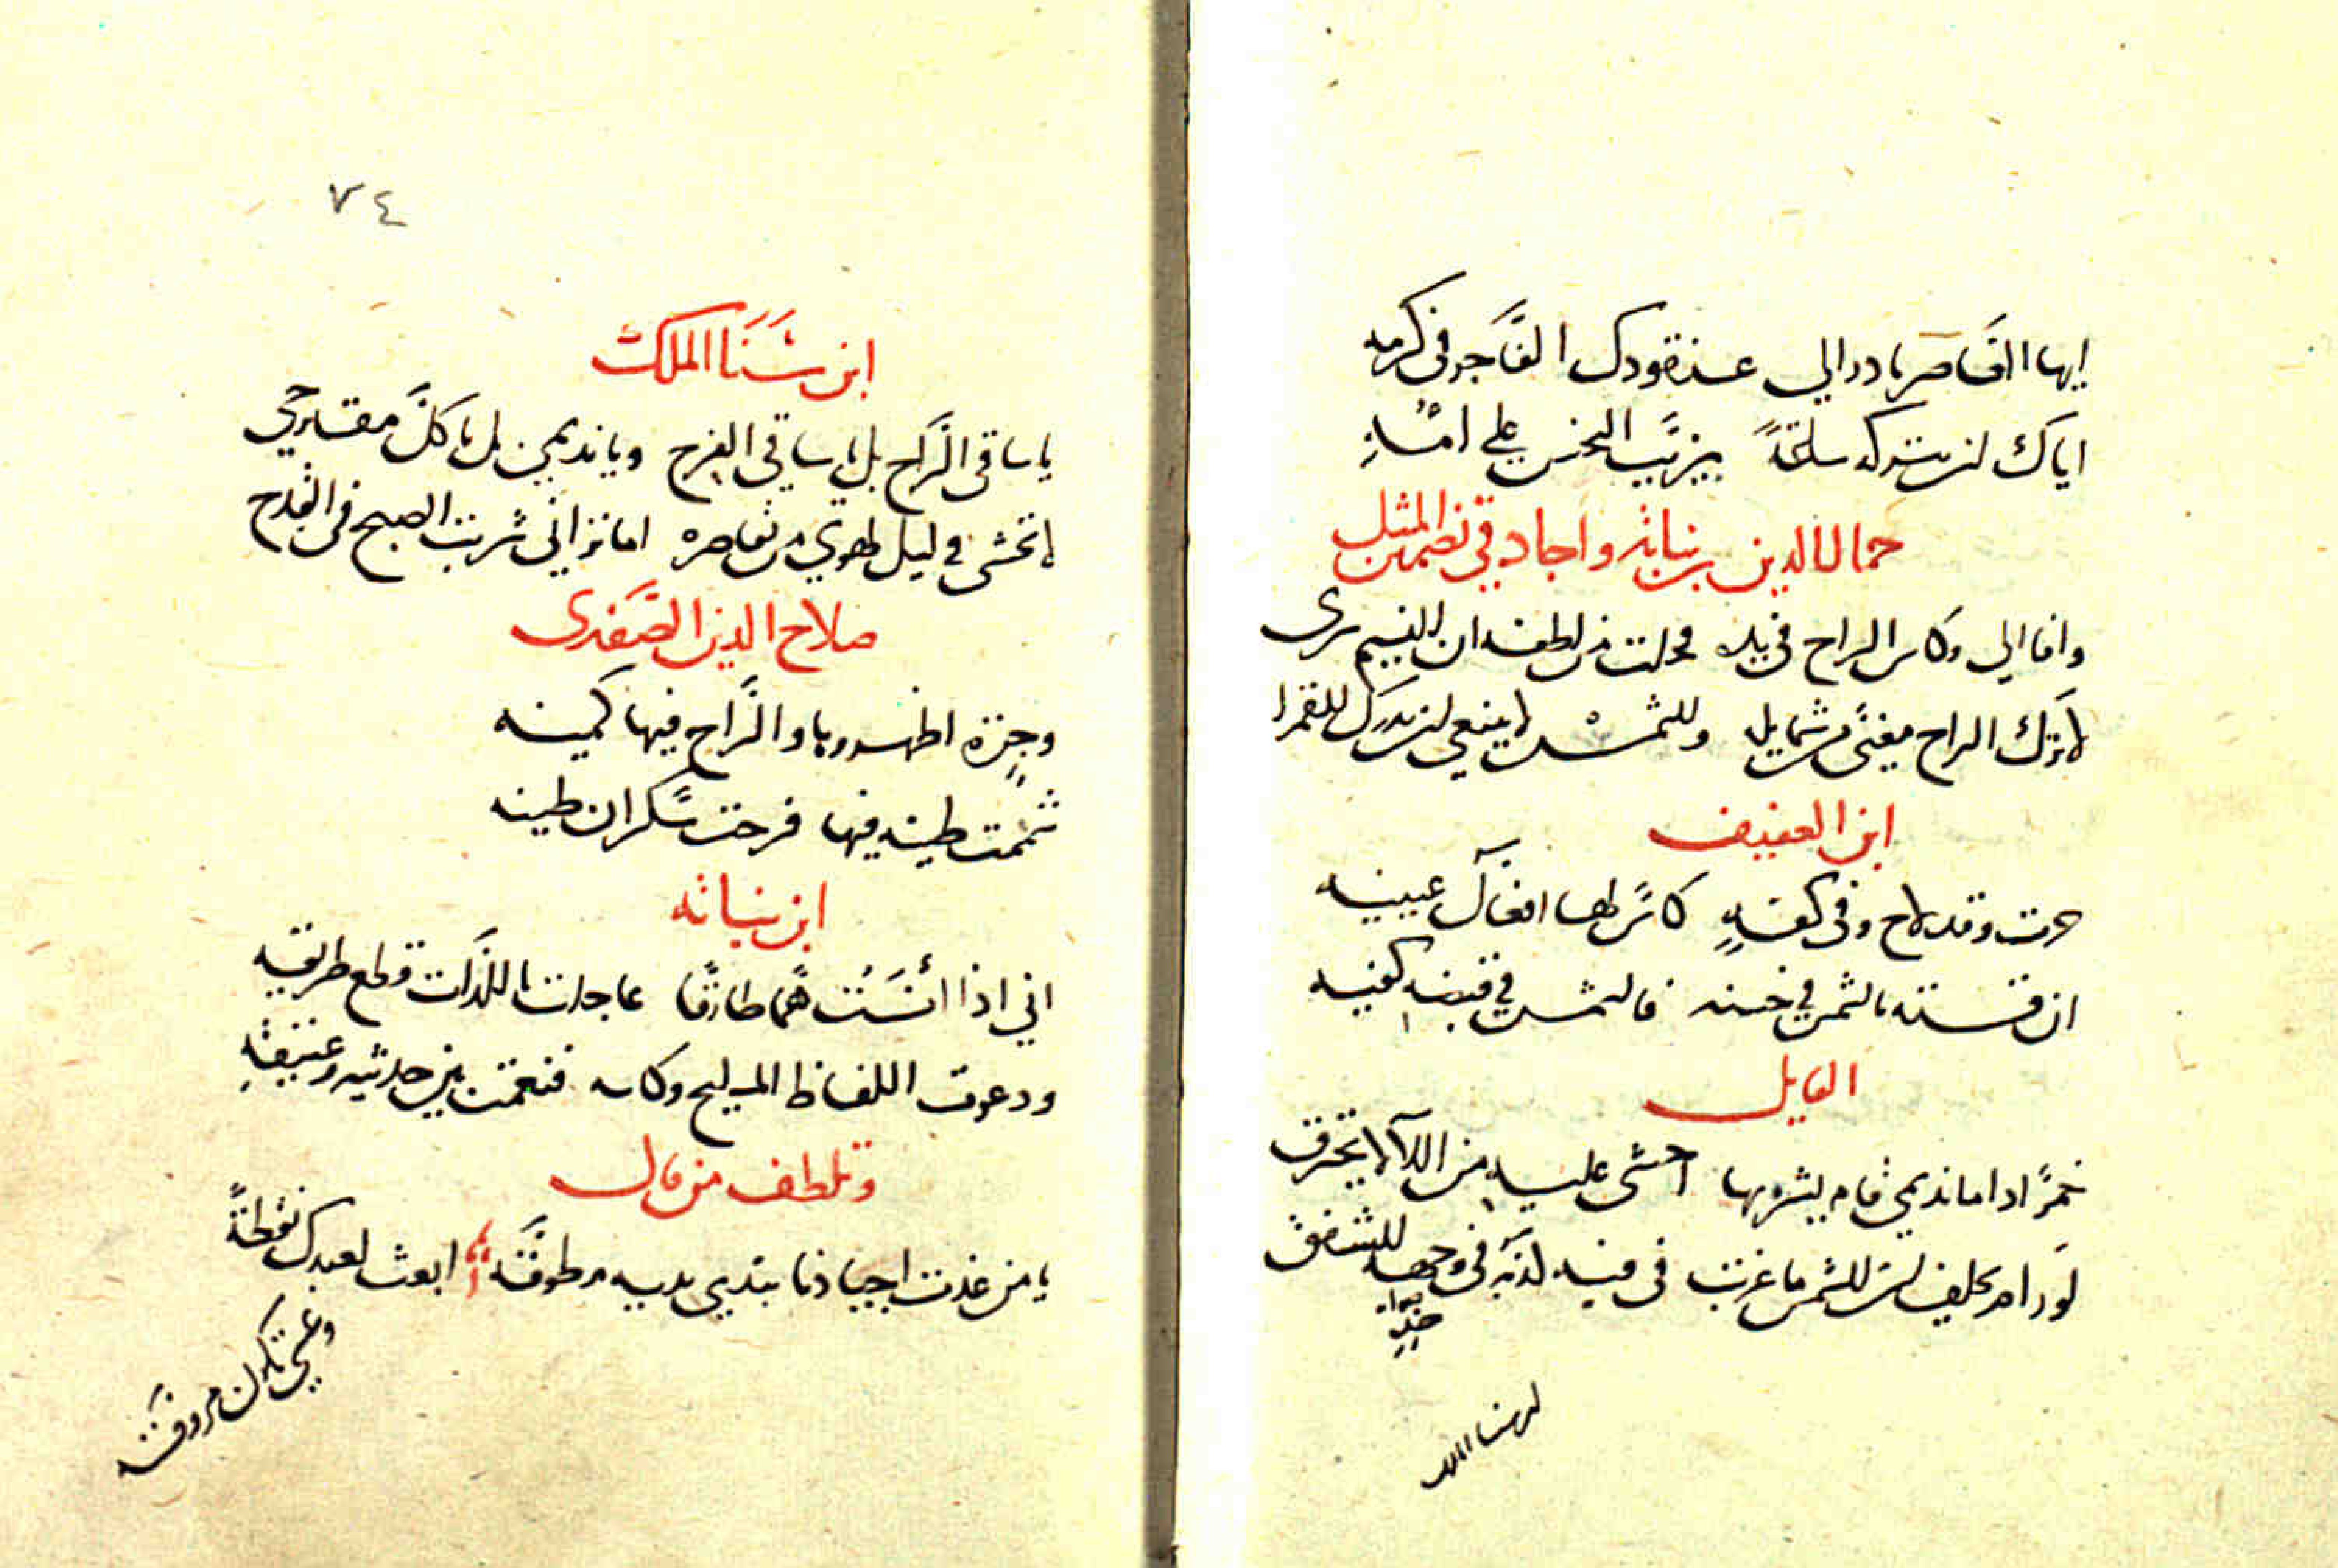 ايها القاصر بادر الى عنقودك الفاجر فى كرمه
اياك ان يتركه ساعةً يزبب الخس على امه
جمال الدين بن نباته واجاد في تضمين المثل
وافا الي وكاس الراح في يده فخلت من لطفه ان النسيم سرى
لا تدرك الراح معنًى من شمايله والشمس لا ينبغي ان تدرك القمرا
ابن العفيف
وقد لاح وفى كفه كاسٌ لها افعال عينيه
ان قسته بالشمس في حسنه فالشمس في قبضه كفيه
القايل
خمرًا اذا ما نديمي قام يشربها اخشى عليه من اللألا يحترق
لو رام يحلف ان الشمس ما غربت في فيه كذبه في وجهه الشفق
خده
ابن سنا الملك
٧٤
ابن سَنَا الملك
يا ساقى الرَّاح بل يا ساقى الفرح ويا نديمي بل يا كلَّ مقترحي
لا تخشى في ليل لهوي من تقاصره اما تراني شربت الصبح في القدح
صلاح الدين الصَّفدى
وجرّة اظهروها والرَّاح فيها كمينه
شممت طينه فيها فرحت سكران طينه
ابن نباته
اني اذا انَسَتُ همًّا طارقًا عاجلت باللذات قطع طريقه
ودعوت الفاظ المليح وكاسه فنعمت بين حديثه وعتيقه
وتلطف من قال
يا من غدت اجيادنا بندي يديه مطوقه ابعث لعبدك نقطةً
وعسى تكون مروقه